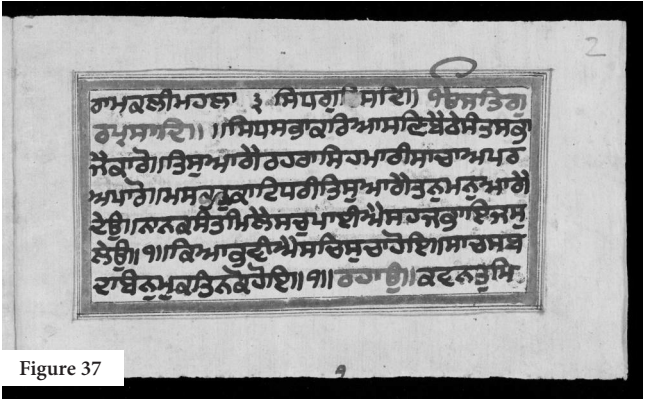 2
ਰਾਮਕਲੀਮਹਲਾ ੩ ਸਿਧਗੁ ਸਦਿ॥ ੴਸਤਿਗੁ
ਰਪ੍ਰਸਾਦਿ॥ ॥ਸਿਧਸਭਾਕਰਿਆਸਣਿਬੈਠੇਸੰਤਸਭਾ
ਜੈਕਾਰੋ॥ਤਿਸੁਆਗੈਰਹਰਾਸਿਹਮਾਰੀਸਾਚਾਅਪਰ
ਅਪਾਰੋ॥ਮਸਤਕੁਕਾਟਿਧਰੀਤਿਸੁਆਗੈਤਨੁਮਨੁਆਗੈ
ਦੇਉ॥ਨਾਨਕਸੰਤੁਮਿਲੈਸਚੁਪਾਈਐਸਹਜਭਾਇਜਸੁ
ਲੇਉ॥੧॥ਕਿਆਭਵੀਐਸਚਿਸੁਚਾਹੋਇ॥ਸਾਚਸਬ
ਦਬਿਨੁਮੁਕਤਿਨਕੋਹੋਇ॥੧॥ਰਹਾਉ॥ਕਵਨਤੁਮਿ
Figure 37